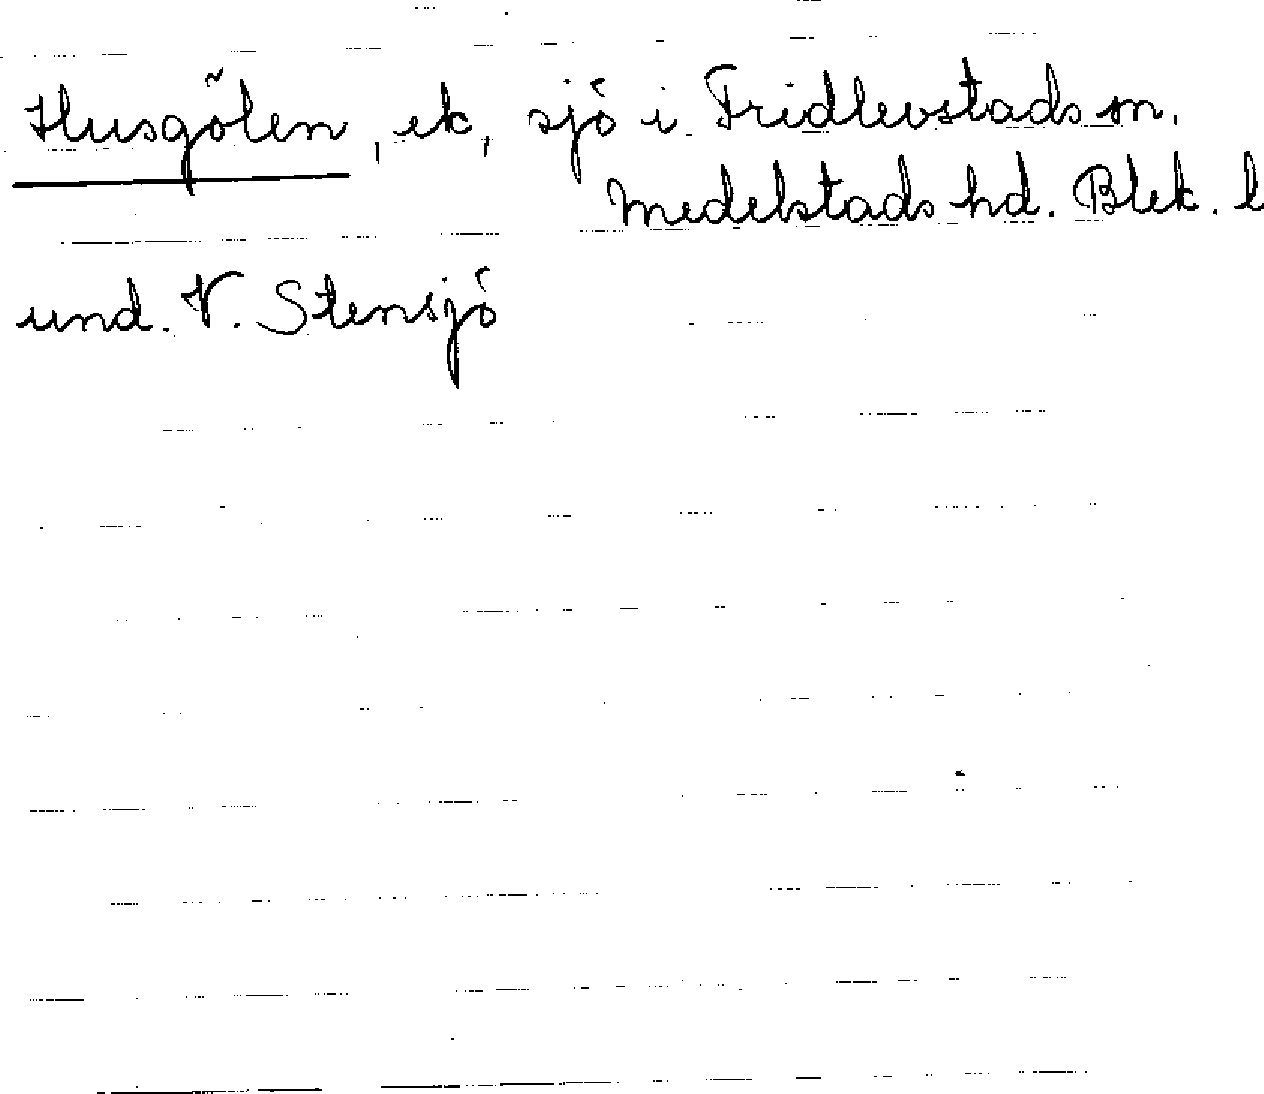 Husgölen, ek, sjö i Fridlevstads sn.
Medelstads hd. Blek. l
und. V. Stensjö